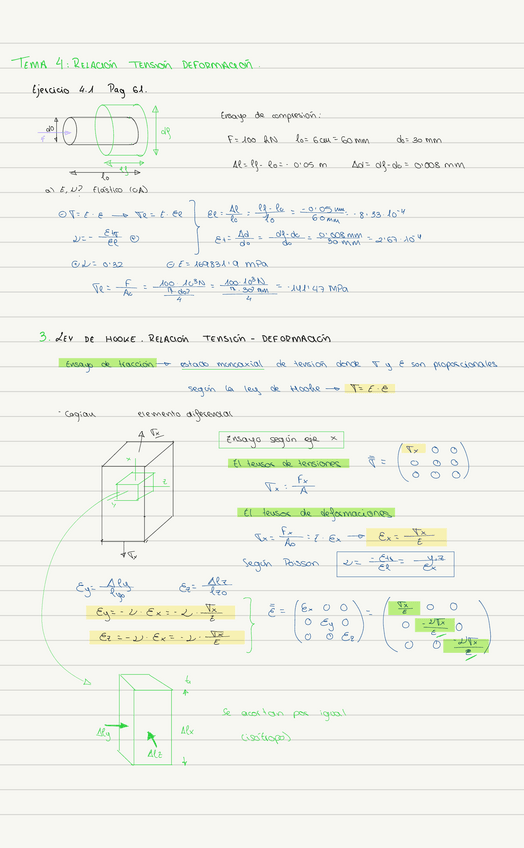 TEMA 4: RELACIÓN TENSIÓN DEFORMACIÓN.
Ejercicio 4.1 Pag 61.
Ensayo de compresión:
F = 100 kN l₀ = 6 cm = 60 mm d₀ = 30 mm
Δl = lf - l₀ = - 0.05 m Δd = df - d₀ = 0.008 mm
d₀ df
lf
l₀
a) E, ν? Elástico (CA)
① σ = E · ε → σe = E · εl
εl = Δl/l₀ = (lf - l₀)/l₀ = -0.05 mm/60 mm = -8.33 · 10⁻⁴
εt = Δd/d₀ = (df - d₀)/d₀ = 0.008 mm/30 mm = 2.67 · 10⁻⁴
② ν = 0.32 ① E = 169831.9 MPa
σe = F/A₀ = 100 · 10³N/(π · d₀²/4) = 100 · 10³N/(π · 30² mm/4) = -141'47 MPa
3. LEY DE HOOKE. RELACIÓN TENSIÓN - DEFORMACIÓN
Ensayo de tracción → estado monoaxial de tensión donde σ y ε son proporcionales
según la ley de Hooke → σ = E · ε
- Cogían elemento diferencial
σx
Ensayo según eje x
El tensor de tensiones
σ = (σx 0 0
0 0 0
0 0 0)
σx = Fx/A
El tensor de deformaciones
x
z
y
σx = Fx/A₀ = E · εx → εx = σx/E
σx
Según Poisson
εy = Δly/ly₀ εz = Δlz/lz₀
εy = -ν · εx = -ν · σx/E
εz = -ν · εx = -ν · σx/E
ε = (εx 0 0
0 εy 0
0 0 εz) = (σx/E 0 0
0 -νσx/E 0
0 0 -νσx/E)
Δly Δlx
Δlz
Se acortan por igual
(isótropo)